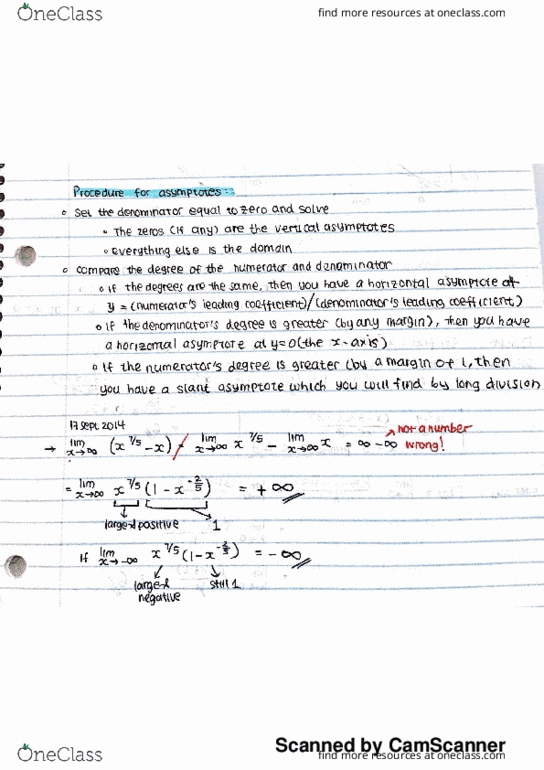 OneClass
find more resources at oneclass.com
Procedure for asymptotes:
◦ Set the denominator equal to zero and solve
◦ The zeros (if any) are the vertical asymptotes
◦ Everything else is the domain
◦ Compare the degree of the numerator and denominator
◦ If the degrees are the same, then you have a horizontal asymptote at
y = (numerator's leading coefficient)/(denominator's leading coefficient)
◦ If the denominator's degree is greater (by any margin), then you have
a horizontal asymptote at y=0 (the x-axis)
◦ If the numerator's degree is greater (by a margin of 1, then
you have a slant asymptote which you will find by long division
17 Sept. 2014
not a number
→ lim x→∞ (x^7/5 - x) ≠ lim x→∞ x^7/5 - lim x→∞ x = ∞ - ∞ wrong!
= lim x→∞ x^7/5 (1 - x^-2/5) = +∞
large & positive 1
If lim x→-∞ x^7/5 (1 - x^-2/5) = -∞
large & still 1
negative
Scanned by CamScanner
OneClass
find more resources at oneclass.com